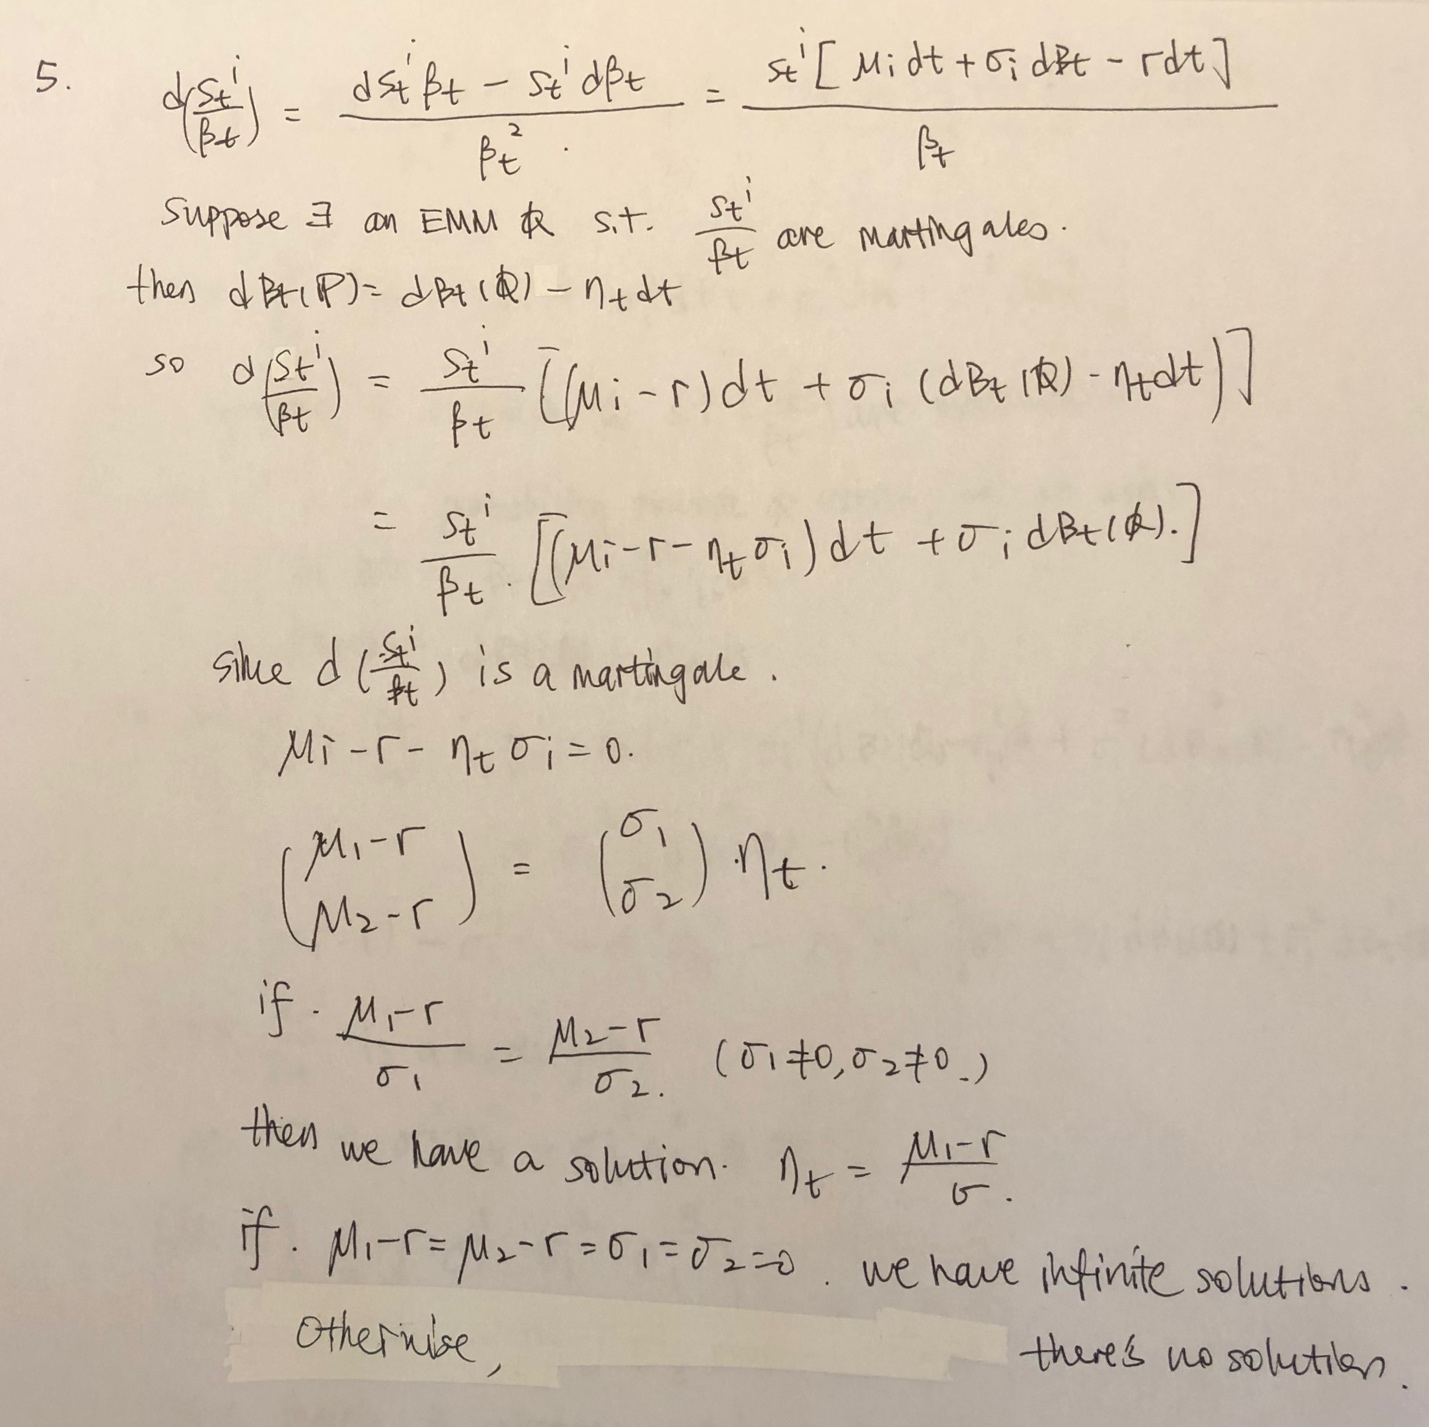 5. d(St^i/βt) = (dSt^i βt - St^i dβt)/βt^2. = St^i [μi dt + σi dBt - r dt]/βt
Suppose ∃ an EMM Q s.t. St^i/βt are martingales.
then dBt(P) = dBt(Q) - ηt dt
so d(St^i/βt) = St^i/βt [(μi - r)dt + σi (dBt(Q) - ηt dt)]
= St^i/βt · [(μi - r - ηt σi)dt + σi dBt(Q).]
since d(St^i/βt) is a martingale.
μi - r - ηt σi = 0.
(μ1 - r
μ2 - r) = (σ1
σ2) · ηt.
if. (μ1 - r)/σ1 = (μ2 - r)/σ2. (σ1 ≠ 0, σ2 ≠ 0.)
then we have a solution. ηt = (μ1 - r)/σ.
if. μ1 - r = μ2 - r = σ1 = σ2 = 0. we have infinite solutions.
Otherwise, there's no solution.